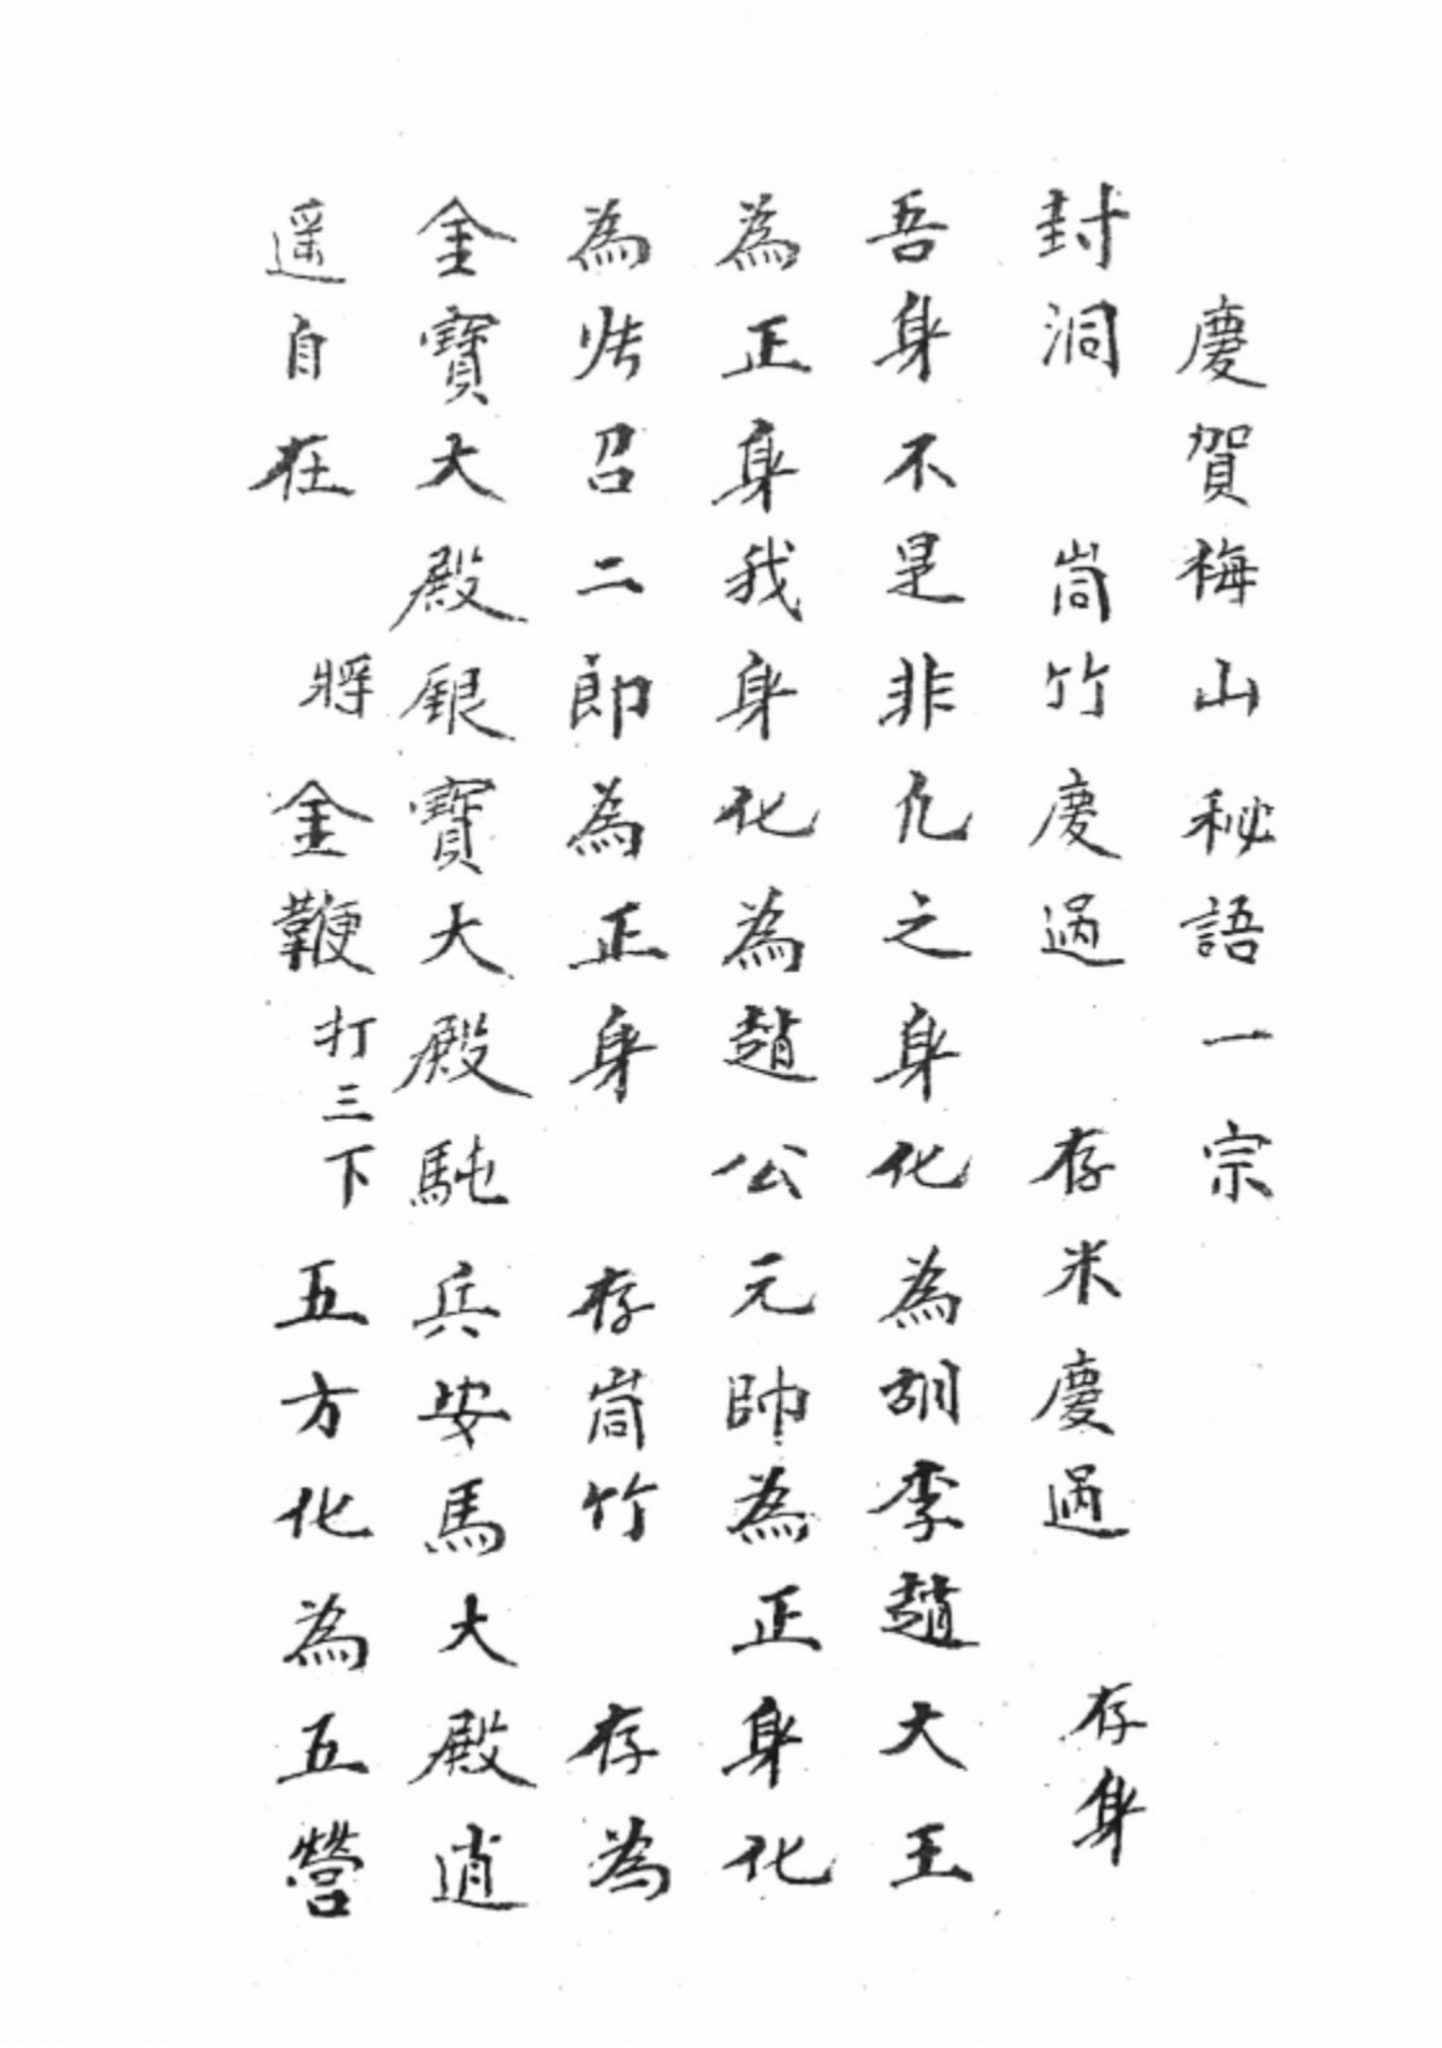 慶賀梅山秘語一宗
封洞 崗竹慶過 存米慶過 存身
吾身不是非凡之身化為胡李趙大王
為正身我身化為趙公元帥為正身化
為 召二郎為正身 存崗竹 存為
金寶大殿銀寶大殿 兵安馬大殿逍
遥自在 將金鞭打三下五方化為五營